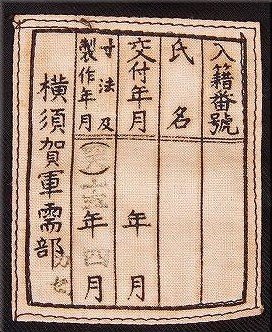 入籍番號
氏名
交付年月
年 月
寸法及
製作年月
十五年四月
横須賀軍需部